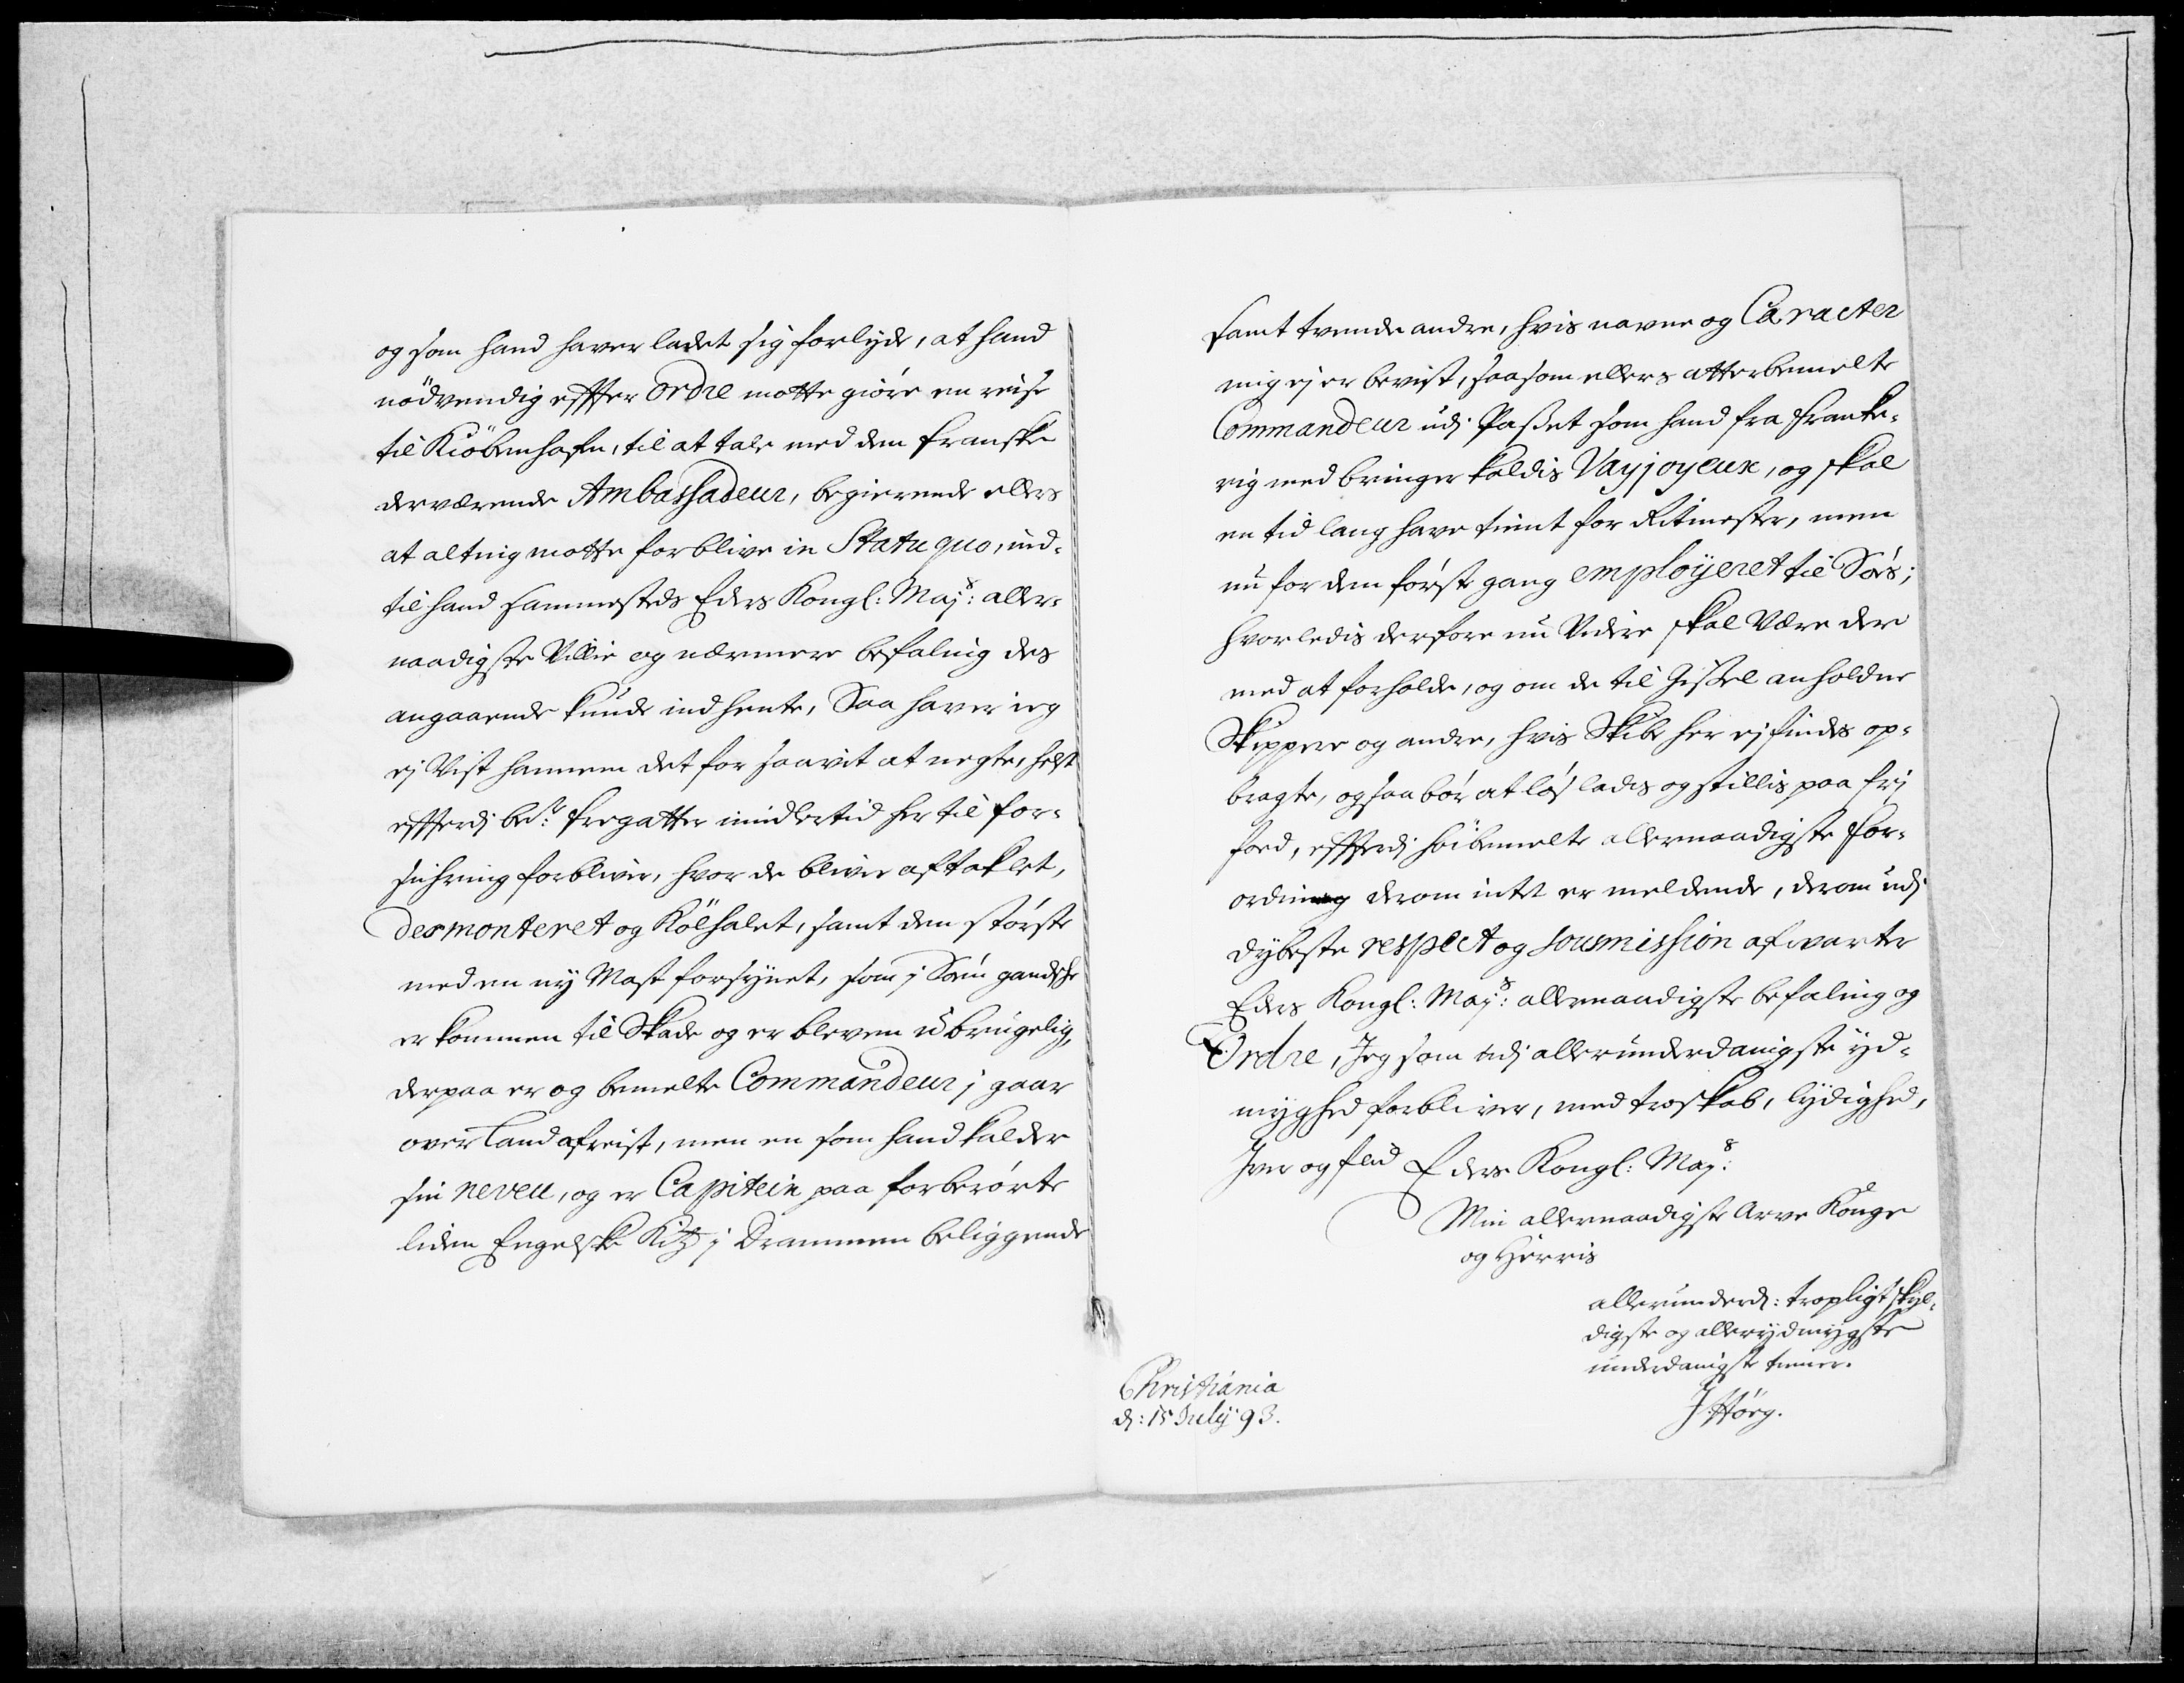 og som hand haver ladet sig forlyde, at hand
nödvendig effter ordre motte giöre en reise
til Kiöbenhafn, til at tale med den franske
derværende Ambassadeur, begierende ellers
at alting motte forblive in Statu quo, ind-
til hand sammesteds Eders Kongl: Majs: aller-
naadigste Villie og nærmere befaling des
angaaende kunde indhente, Saa haver ieg
ej Vist hannem det for saavit at negte, helst
effterdj bete: fregatter imidlertid her til for-
sichring forbliver, hvor de bliver aftaklet,
desmonteret og Kölhalet, samt den störste
med en ny Mast forsynet, som j Söen gandsche
er kommen til Skade og er bleven ubrugelig,
derpaa er og bemelte Commandeur j gaar
over Land afreist, men en som hand kalder
sin neveu, og er Capitein paa forberörte
liden Engelske Kitz j Drammen beliggende
samt tvende andre, hvis navne og Caracter
mig ej er bevist, saasom ellers atterbemelte
Commandeur udj Passet som hand fra Franke-
rig med bringer kaldis Vayjoyeux, og skal
en tid lang have tient for Ritmester, men
nu for den förste gang employeret til Söes;
hvorledis derfore nu Videre skal Være der
med at forholde, og om de til Gissel anholdne
Skippere og andre, hvis Skibe her ej findes op-
bragte, ogsaa bör at lös lades og stillis paa frj
foed, effterdj höibemelte allernaadigste For-
ordning derom intet er meldende, derom udj
dybeste respect og sousmission afvarter
Eders Kongl: Majs: allernaadigste befaling og
Ordre, Jeg som udj allerunderdanigste yd-
myghed forbliver, med troskab, lydighed,
Iver og flid Eders Kongl: Majs:
Min allernaadigste Arve Konge
og Herris
allerunderd: tropligt skyl-
digste og allerydmygste
underdanigste tiener.
Christiania
d: 15 July 93.